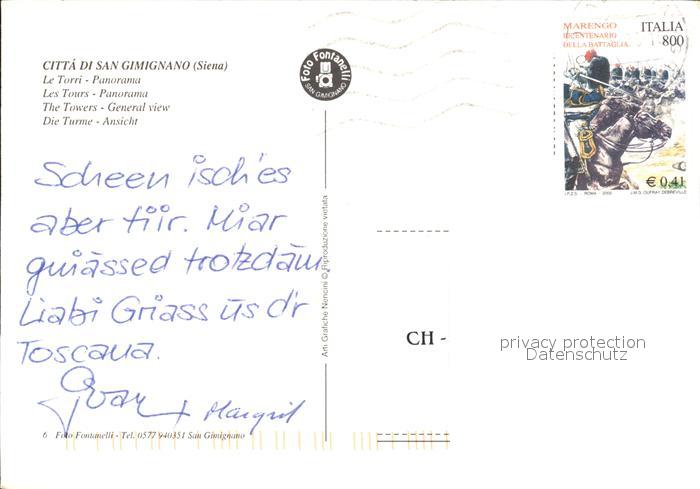 CITTÀ DI SAN GIMIGNANO (Siena)
Le Torri - Panorama
Les Tours - Panorama
The Towers - General view
Die Turme - Ansicht
Foto Fontanelli
SAN GIMIGNANO
MARENGO
BICENTENARIO
DELLA BATTAGLIA
ITALIA
800
€ 0,41
I.P.Z.S. - ROMA - 2000
J.M.G. DUFRAY DEBREVILLE
Scheen isch es
aber tiir. Miar
gniässed trotzdäm.
Liabi Griass üs d'r
Toscana.
+ Margrit
Arti Grafiche Nencini © Riproduzione vietata
CH -
privacy protection
Datenschutz
6 Foto Fontanelli - Tel. 0577 940351 San Gimignano